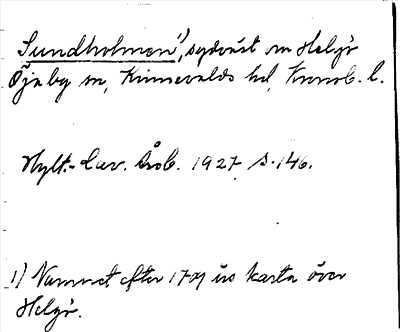 Sundholmen 1), sydväst om Helgö
Öjaby sn, Kinnevalds hd, Kronob. l.
Hylt.-Cav. Årsb. 1927 s. 146.
1) Namnet efter 1709 års karta över
Helgö.